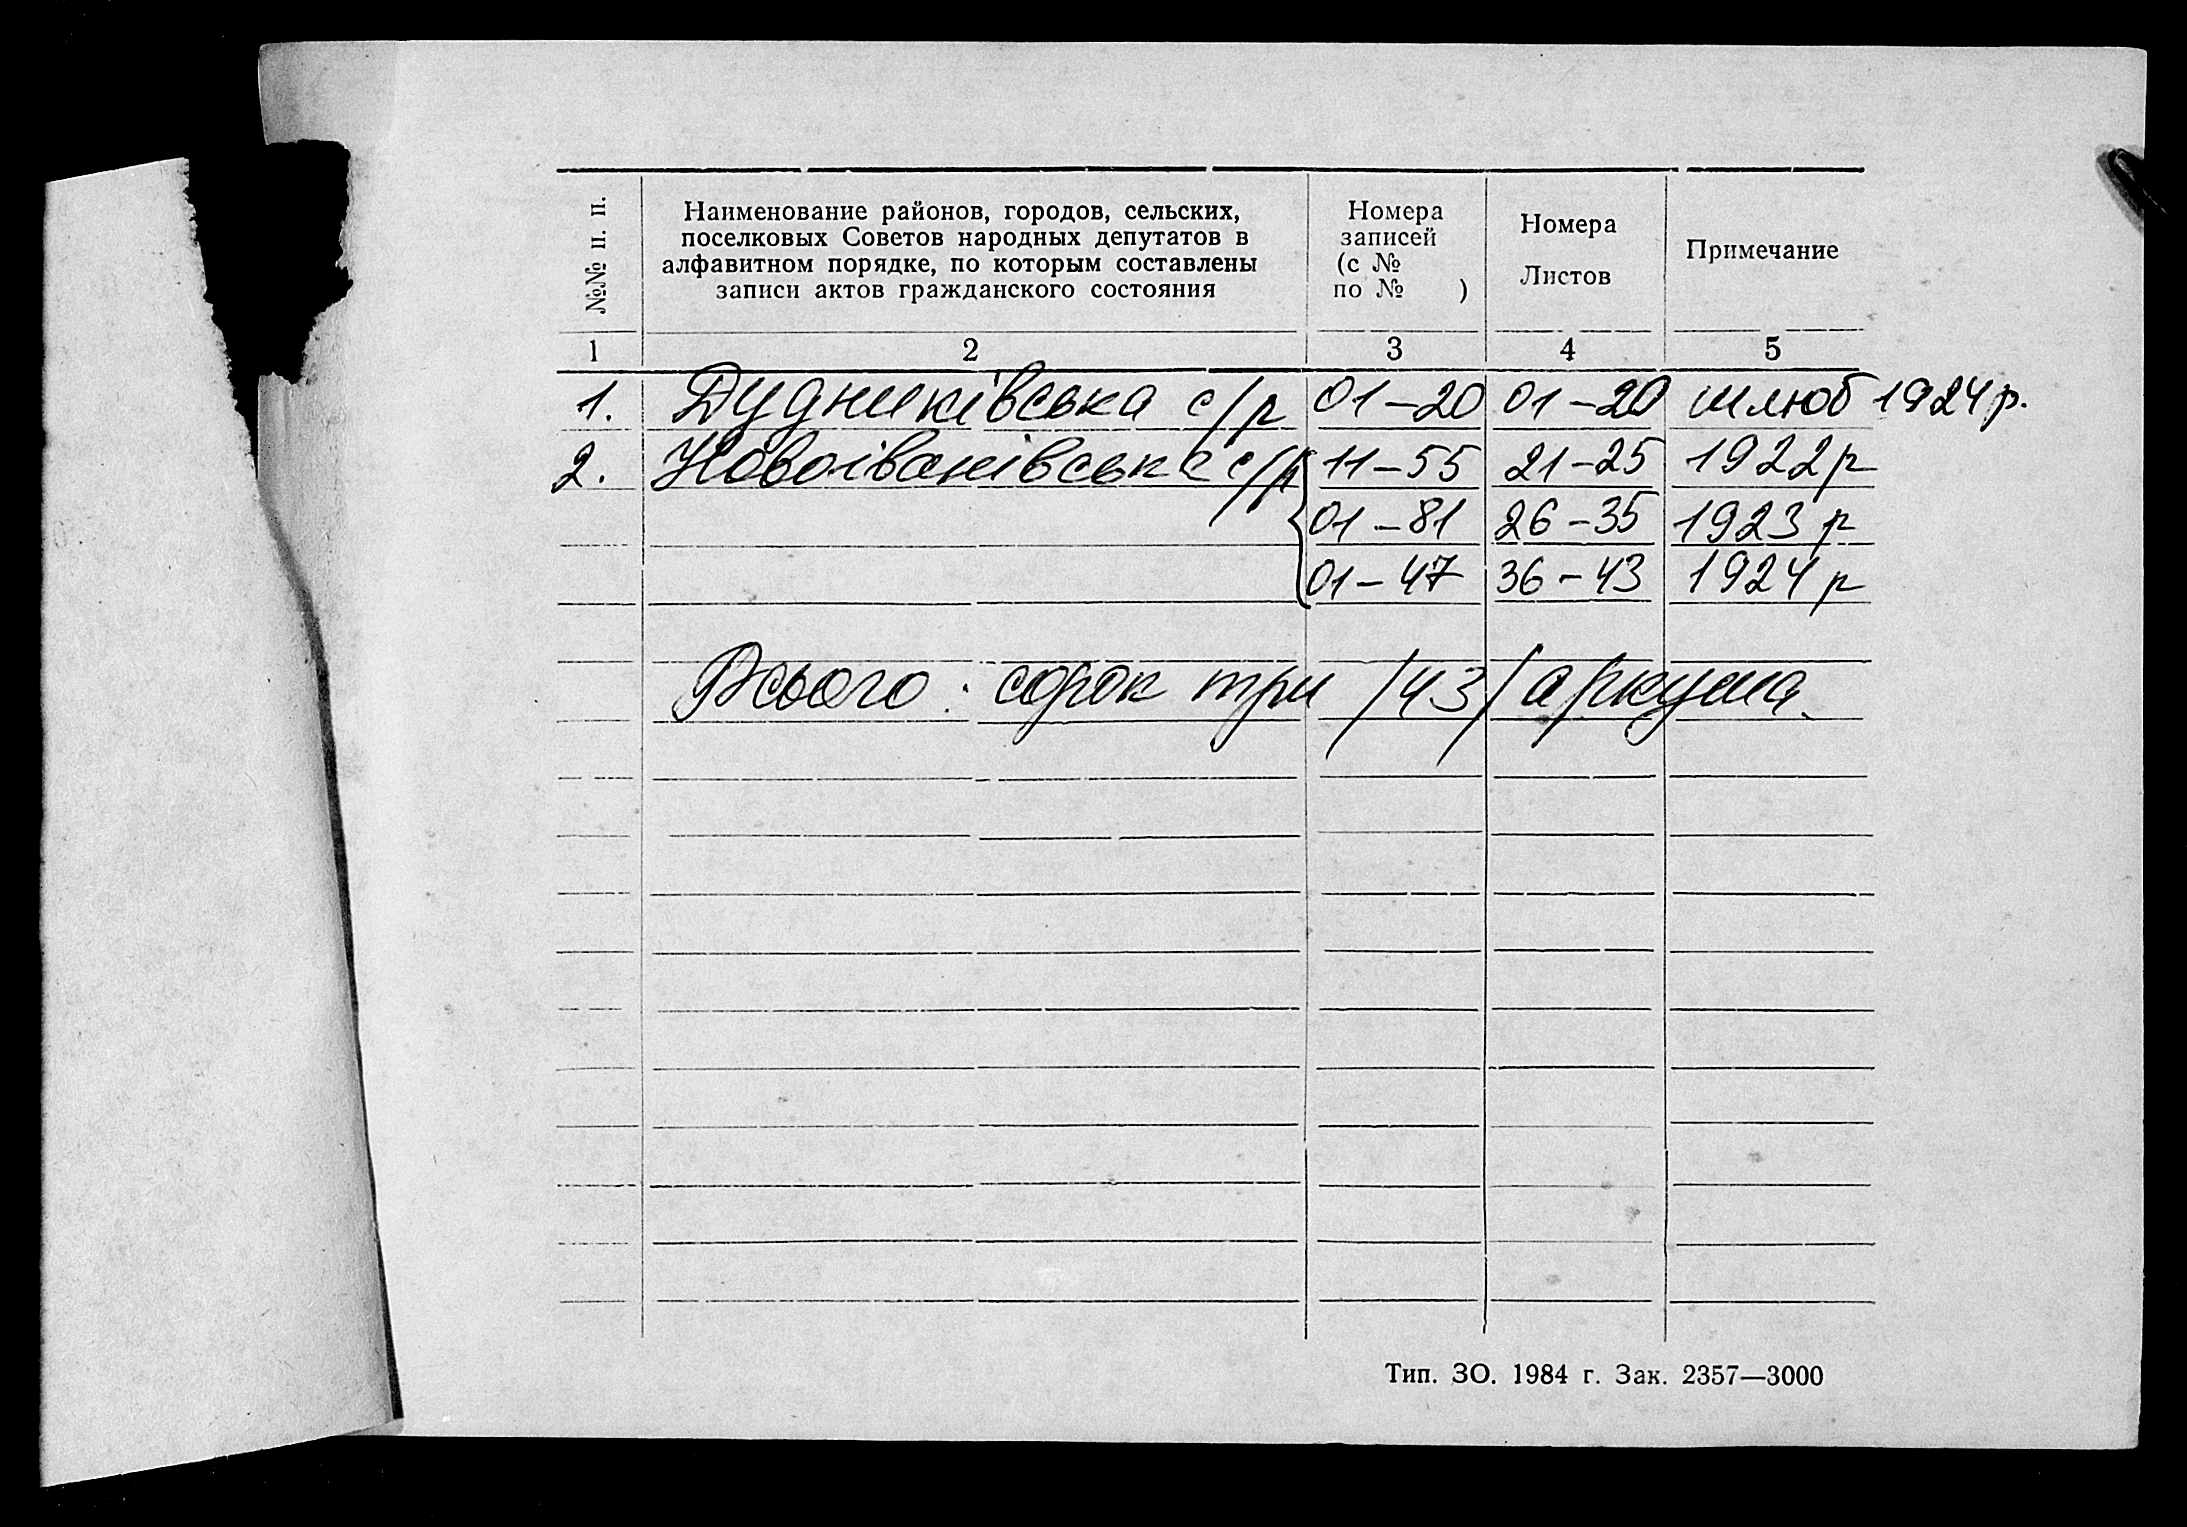 №№ п. п.
Наименование районов, городов, сельских,
поселковых Советов народных депутатов в
алфавитном порядке, по которым составлены
записи актов гражданского состояния
Номера
записей
(с №
по № )
Номера
Листов
Примечание
1 2 3 4 5
1. Дудниківська с/р 01-20 01-20 шлюб 1924 р.
2. Новоіванівська с/р 11-55 21-25 1922 р
01-81 26-35 1923 р
01-47 36-43 1924 р
Всього: сорок три /43/ аркуша.
Тип. ЗО. 1984 г. Зак. 2357—3000